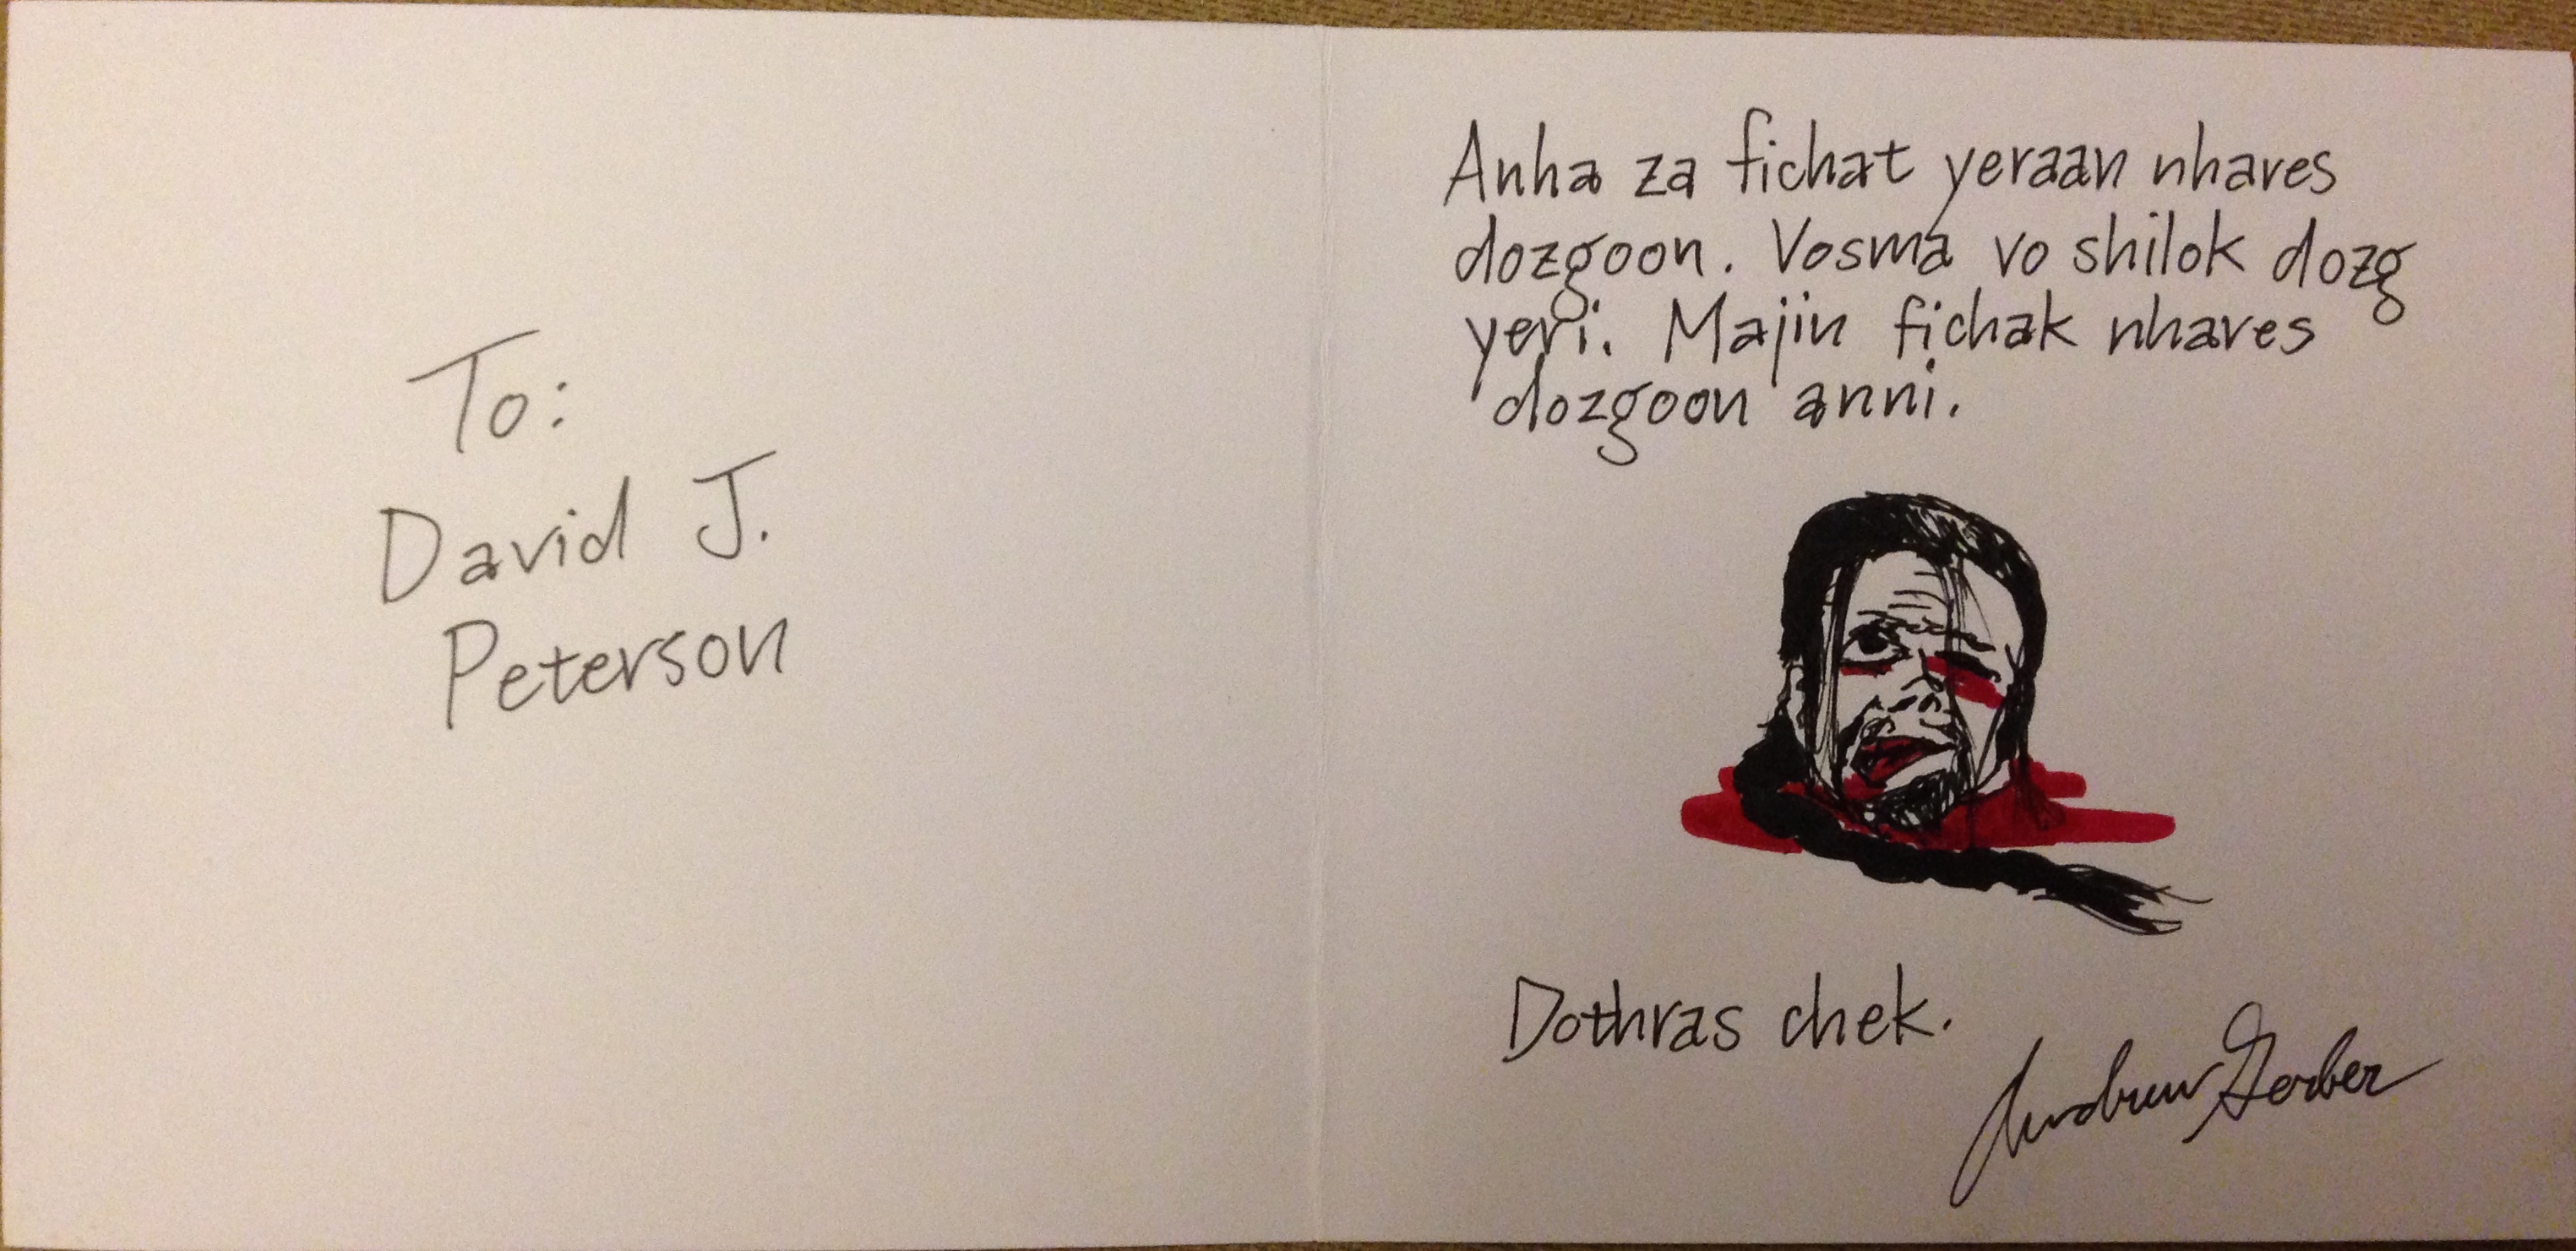 To:
David J.
Peterson
Anha za fichat yeraan nhares
dozgoon. Vosma vo shilok dozg
yeri. Majin fichak nhares
dozgoon anni.
Dothras chek.
Andrew Gerber